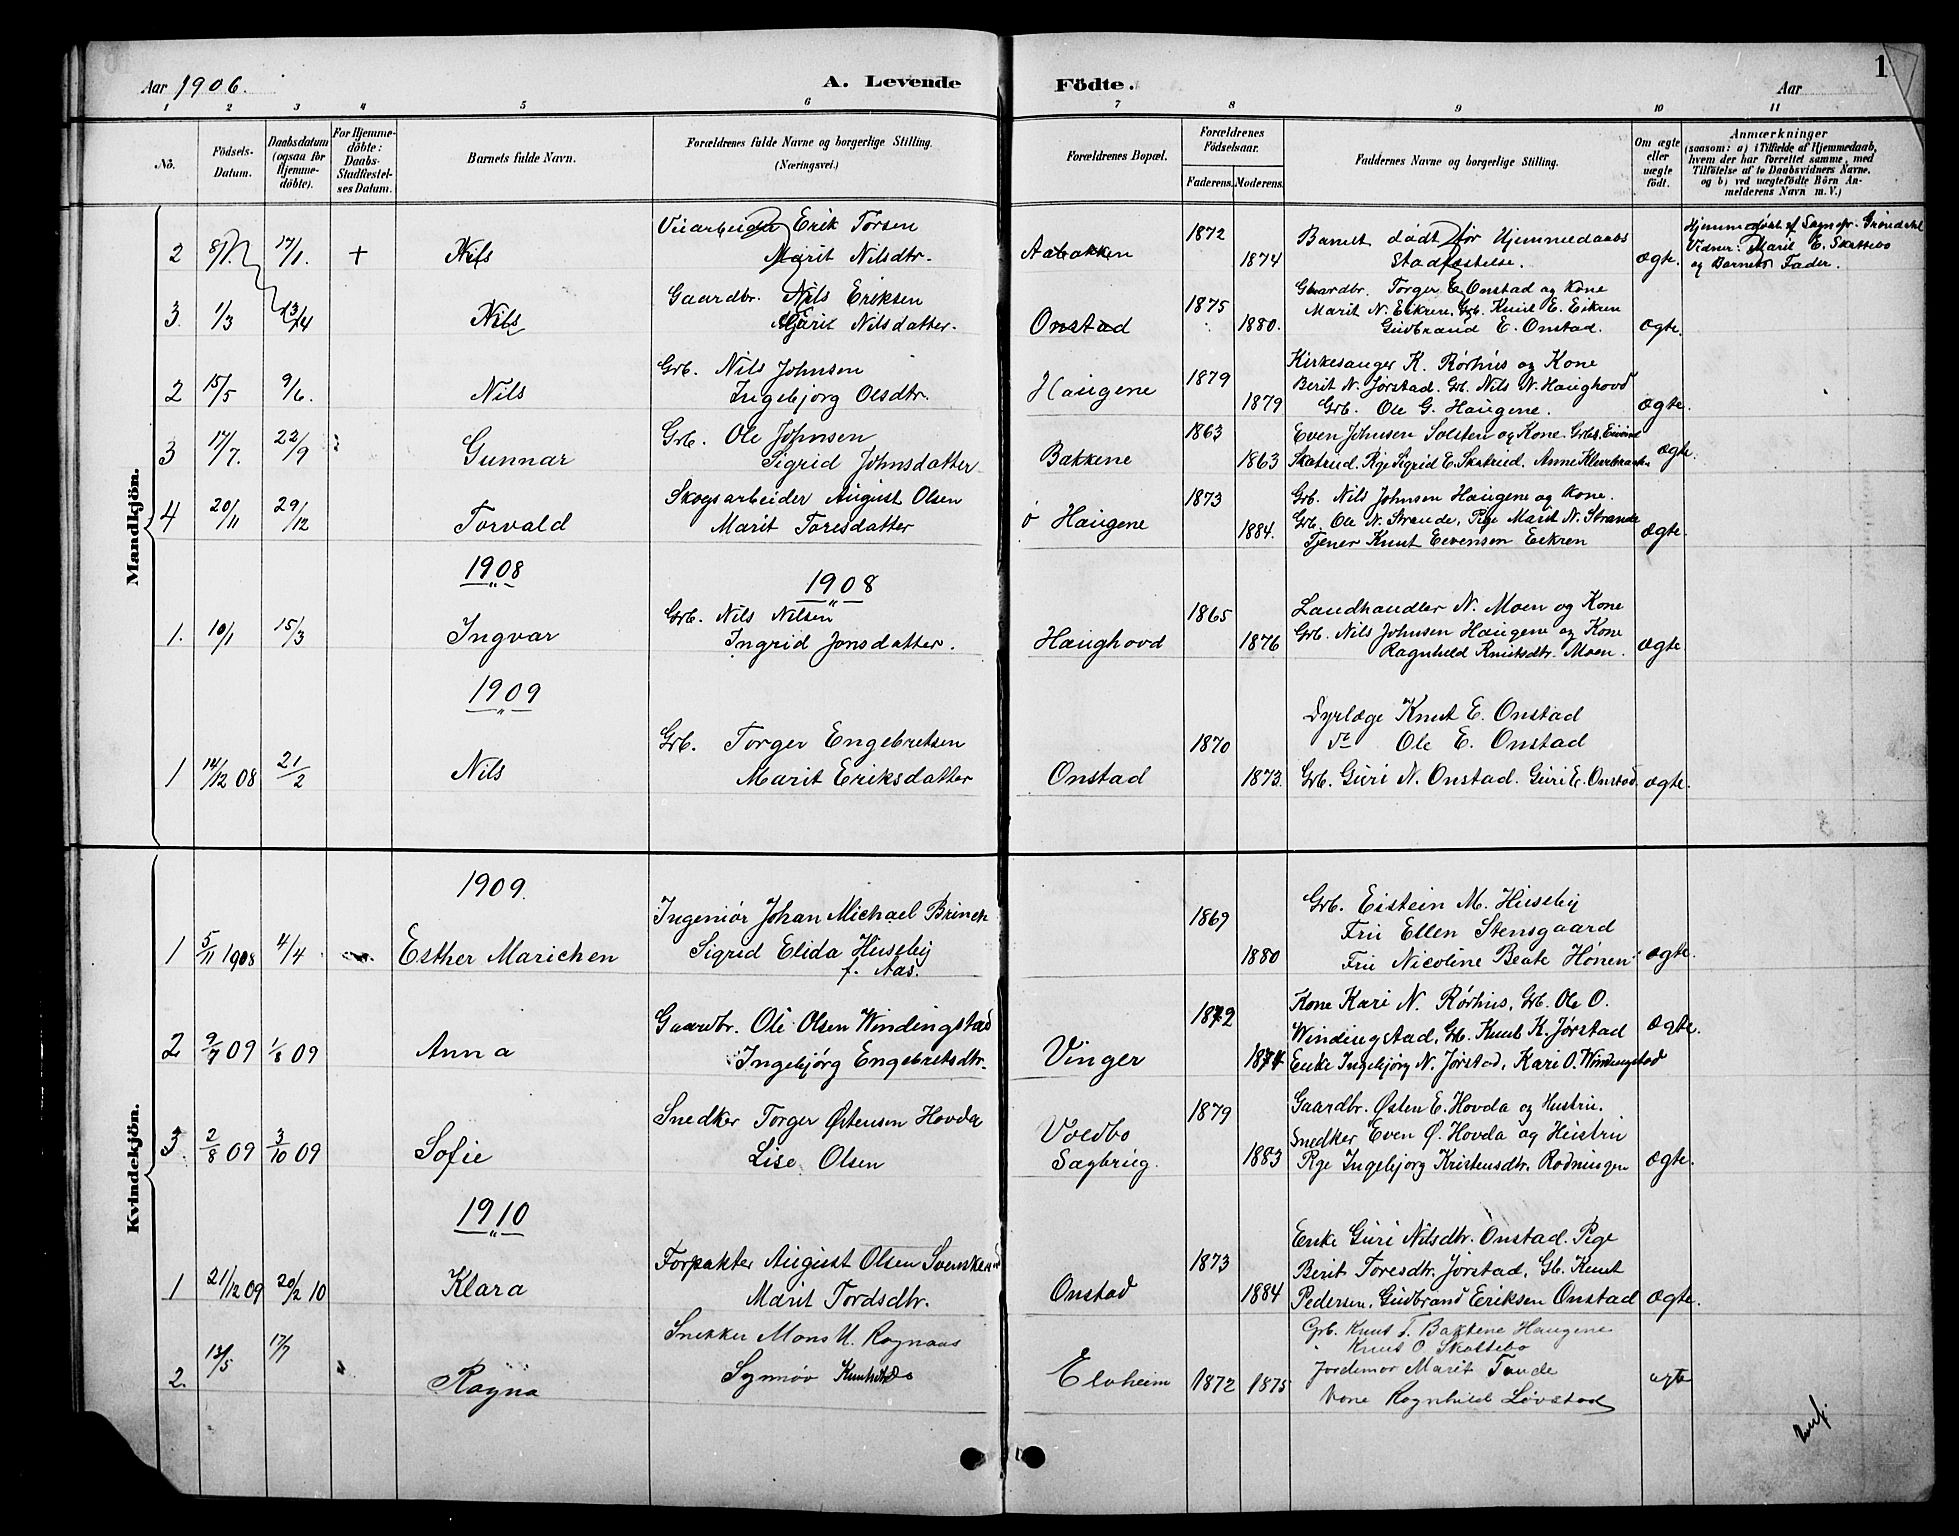 Aar 1906. A. Levende Födte. Aar 1
1 2 3 4 5 6 7 8 9 10 11
Nô. Födsels-Datum. Daabsdatum (ogsaa for Hjemme-döbte). For Hjemme-döbte: Daabs-Stadfæstel-ses Datum. Barnets fulde Navn. Forældrenes fulde Navne og borgerlige Stilling. (Næringsvei.) Forældrenes Bopæl. Forældrenes Födselsaar. Faderens. Moderens. Faddernes Navne og borgerlige Stilling. Om ægte eller uægte födt. Anmærkninger (saasom: a) i Tilfælde af Hjemmedaab, hvem der har forrettet samme, med Tilföielse af to Daabsvidners Navne. og b) ved uægtefödte Börn An-melderens Navn m. V.)
Mandkjön.
Erik Torsen 1872 Barnet dødt før Hjemmedaabs
2 8/1. 17/1. + Nils Marit Nilsdtr. Aabakken 1874 Stadfæstelse. ægte. Vidner: Marit E. Skattebo
og Barnets Fader.
Gaardbr. Nils Eriksen 1875 Gaardbr. Torger E. Onstad og Kone
3. 1/3 Nils Marit Nilsdatter. Onstad 1880. Marit N. Eekren, Grb. Knut E. Eekren
Gudbrand E. Onstad. ægte.
Grb. Nils Johnsen 1879 Kirkesanger K. Rørhus og Kone
2 15/5 9/6. Nils Ingebjorg Olsdtr. Haugene 1879 Berit N. Jørstad. Grb. Nils N. Haughovd
Grb. Ole G. Haugene. ægte.
Grb. Ole Johnsen 1863 Even Johnsen Solsten og Kone. Grbs. Eivind
3 17/7. 22/9 Gunnar Sigrid Johnsdatter Bakkene 1863 Skatrud, Pige Sigrid E. Skatrud, Anne ægte.
Skogsarbeider August Olsen 1873 Grb. Nils Johnsen Haugene og Kone.
4 20/11 29/12 Torvald Marit Toresdatter ø Haugene 1884. Grb. Ole N. Strande, Pige Marit N. Strande
Tjener Knut Eevensen Eekren ægte.
1908 1908
Grb. Nils Nilsen 1865 Landhandler N. Moen og Kone
1. 10/1 15/3 Ingvar Ingrid Jonsdatter. Haughovd 1876 Grb. Nils Johnsen Haugene og Kone
Ragnhild Knutsdtr. Moen. ægte
1909
Dyrlæge Knut E. Onstad
Grb. Torger Engebretsen 1870 Ole E. Onstad
1 14/12 08 21/2 Nils Marit Eriksdatter Onstad 1873. Grb. Guri N. Onstad. Guri E. Onstad. ægte.
Kvindekjön.
1909.
Ingeniør Johan Michael Brinch 1869 Grb. Eistein M. Huseby
Fru Ellen Stensgaard
1 5/11 1908 4/4 Esther Marichen Sigrid Elida Huseby 1880 Fru Nicoline Beate Hønen ægte.
f. Aas.
Gaardbr. Ole Olsen Windingstad 1872 Kone Kari N. Rørhus, Grb. Ole O.
Windingstad, Grb. Knut K. Jørstad ægte.
2 9/7 09 1/8 09 Anna Ingebjørg Engebretsdtr. Vinger 1874 Enke Ingebjørg N. Jørstad, Kari O. Windingstad
Snedker Torger Østensen Hovda 1879 Gaardbr. Østen E. Hovda og Hustru.
Voldbo Snedker Even Ø. Hovda og Hustru
3. 2/8 09 3/10 09 Sofie Lise Olsen Sagbrug. 1883 Pige Ingebjorg Kristensdtr. Rodningen ægte.
1910
Enke Guri Nilsdtr. Onstad. Pige
Forpakter August Olsen 1873 Berit Toresdtr. Jørstad, Gb. Knut
1 21/12 09 20/2 10 Klara Marit Tordsdtr. Onstad 1884 Pedersen, Gudbrand Eriksen Onstad ægte.
Snekker Mons U. Rognaas Grb. Knut T. Bakkene Haugene
13/5 17/7 Knut O. Skattebo
2. Ragna Synnøv Elvheim 1872 1875 Jordemor Marit Tande ægte
Kone Ragnhild Løvstad